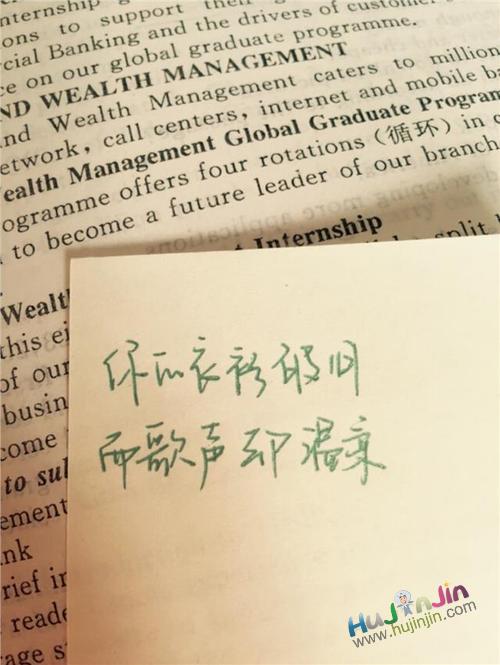 nternship
ons to support their
cial Banking and the drivers of custome
ce on our global graduate programme.
ND WEALTH MANAGEMENT
and Wealth Management caters to million
etwork, call centers, internet and mobile ba
ealth Management Global Graduate Program
ogramme offers four rotations（循环）in
to become a future leader of our branch
t Internship
split
Wealt
this ei
of our
busin
come
to sub
ement
nk
rief in
reade
rage s
你的衣衫破旧
而歌声却温柔
HuJinJin
www.hujinjin.com